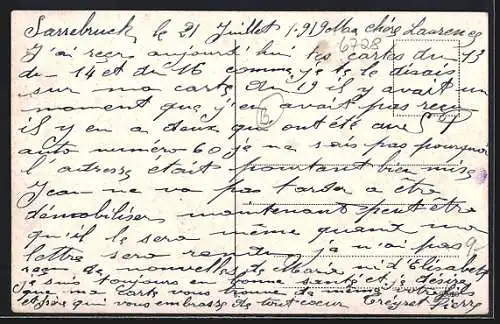 Sarrebruck le 21 Juillet 1919 Ma chère Laurence
J'ai reçu aujourd'hui tes cartes du 13
du 14 et du 16 comme je te le disais
sur ma carte du 19 il y avait un
moment que j'en avait pas reçu
il y en a deux qui ont été au S P
auto numéro 60 je ne sais pas pourquoi
l'adresse était pourtant bien mise
Jean ne va pas tarder a etre
démobiliser maintenant peut être
qu'il le sera même quant ma
lettre sera je n'ai pas
reçu de nouvelles de Maria n'i d'Elisabeth
je suis toujours en bonne santé et je désire
que ma carte vous trouve de même
qui vous embrasse de tout coeur Treyret Pierre
6728
B